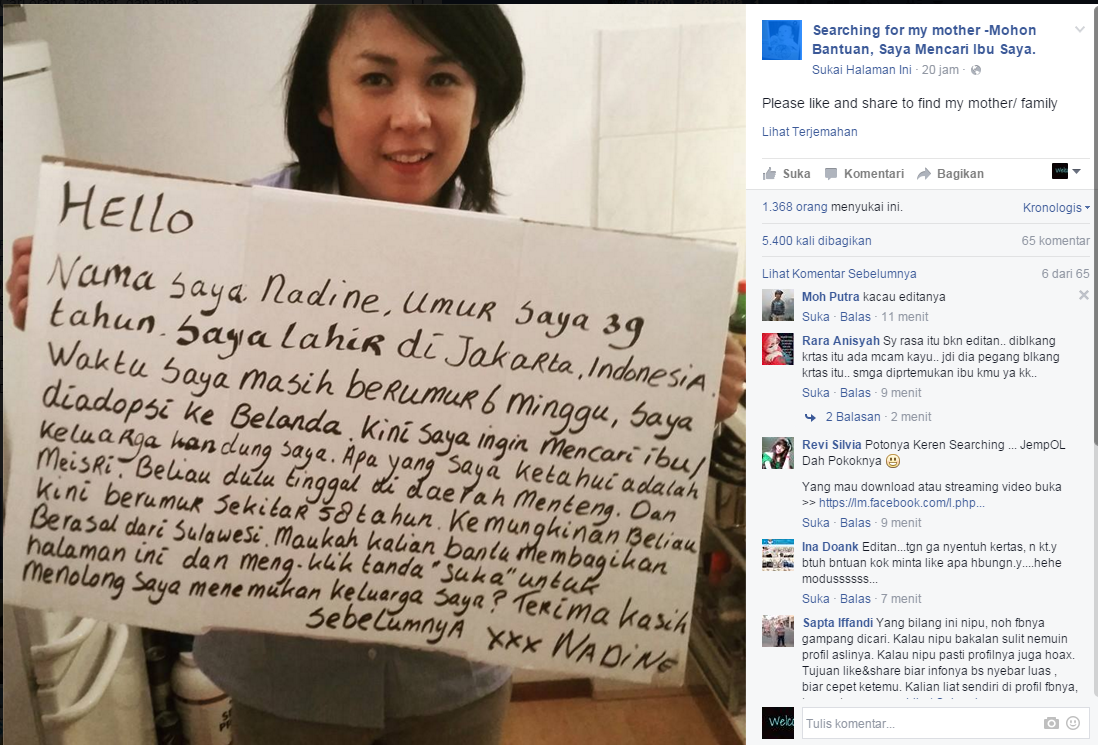 HELLO
Nama saya Nadine, Umur saya 39
tahun. Saya lahir di Jakarta, Indonesia.
Waktu saya masih berumur 6 Minggu, saya
diadopsi ke Belanda. Kini saya ingin Mencari ibu/
keluarga kandung saya. Apa yang saya ketahui adalah
Meisri. Beliau dulu tinggal di daerah Menteng. Dan
kini berumur sekitar 58 tahun. Kemungkinan Beliau
Berasal dari Sulawesi. Maukah kalian bantu Membagikan
halaman ini dan meng-klik tanda "suka" untuk
Menolong saya menemukan keluarga saya? Terima kasih
sebelumnya xxx NADINE
Searching for my mother -Mohon
Bantuan, Saya Mencari Ibu Saya.
Sukai Halaman Ini · 20 jam ·
Please like and share to find my mother/ family
Lihat Terjemahan
Suka Komentari Bagikan
1.368 orang menyukai ini. Kronologis
5.400 kali dibagikan 65 komentar
Lihat Komentar Sebelumnya 6 dari 65
Moh Putra kacau editanya
Suka · Balas · 11 menit
Rara Anisyah Sy rasa itu bkn editan.. diblkang
krtas itu ada mcam kayu.. jdi dia pegang blkang
krtas itu.. smga diprtemukan ibu kmu ya kk..
Suka · Balas · 9 menit
2 Balasan · 2 menit
Revi Silvia Potonya Keren Searching ... JempOL
Dah Pokoknya
Yang mau download atau streaming video buka
>> https://lm.facebook.com/l.php...
Suka · Balas · 9 menit
Ina Doank Editan...tgn ga nyentuh kertas, n kt.y
btuh bntuan kok minta like apa hbungn.y....hehe
modussssss...
Suka · Balas · 7 menit
Sapta Iffandi Yang bilang ini nipu, noh fbnya
gampang dicari. Kalau nipu bakalan sulit nemuin
profil aslinya. Kalau nipu pasti profilnya juga hoax.
Tujuan like&share biar infonya bs nyebar luas ,
biar cepet ketemu. Kalian liat sendiri di profil fbnya,
Welc
Tulis komentar...